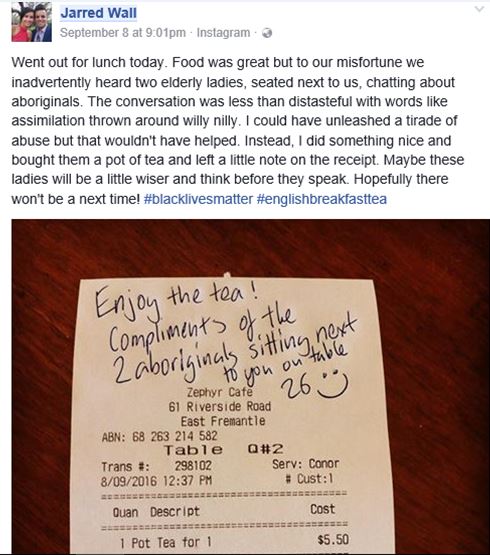 Jarred Wall
September 8 at 9:01pm · Instagram ·
Went out for lunch today. Food was great but to our misfortune we
inadvertently heard two elderly ladies, seated next to us, chatting about
aboriginals. The conversation was less than distasteful with words like
assimilation thrown around willy nilly. I could have unleashed a tirade of
abuse but that wouldn't have helped. Instead, I did something nice and
bought them a pot of tea and left a little note on the receipt. Maybe these
ladies will be a little wiser and think before they speak. Hopefully there
won't be a next time! #blacklivesmatter #englishbreakfasttea
Enjoy the tea!
Compliments of the
2 aboriginals sitting next
to you on table
26
Zephyr Cafe
61 Riverside Road
East Fremantle
ABN: 68 263 214 582
Table Q#2
Trans #: 298102 Serv: Conor
8/09/2016 12:37 PM # Cust:1
Quan Descript Cost
1 Pot Tea for 1 $5.50